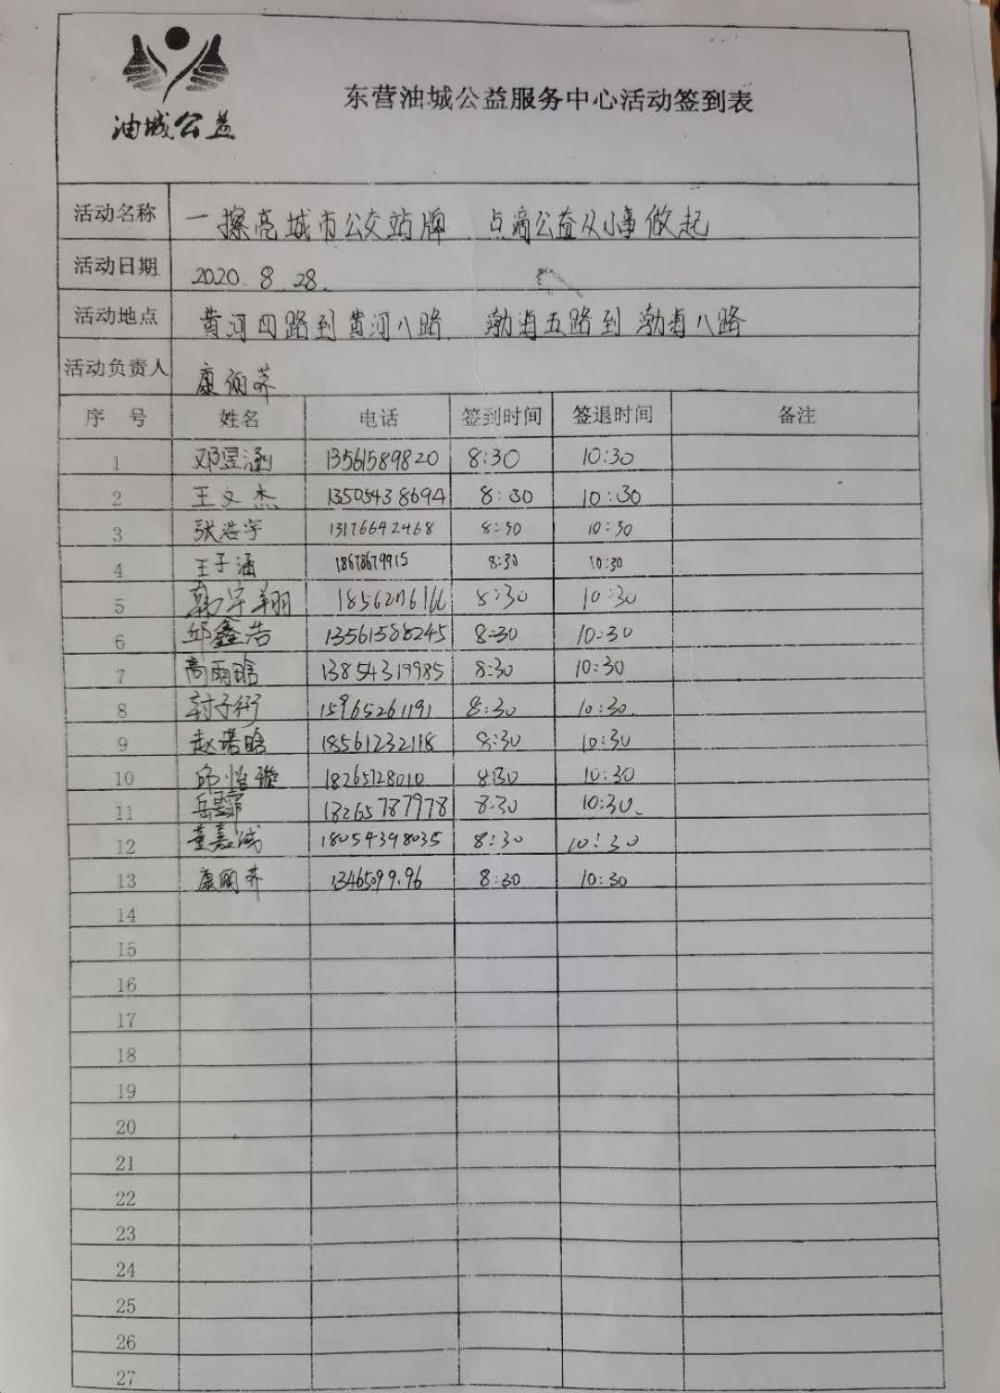 油城公益
东营油城公益服务中心活动签到表
活动名称 一擦亮城市公交站牌 点滴公益从小事做起
活动日期 2020.8.28.
活动地点 黄河四路到黄河八路 渤海五路到渤海八路
活动负责人 康
序号 姓名 电话 签到时间 签退时间 备注
1 邓昱涵 13561589820 8:30 10:30
2 王文杰 13505438694 8:30 10:30
3 张浩宇 13176642468 8:30 10:30
4 王子涵 18678679915 8:30 10:30
5 韩宇翔 8:30 10:30
6 邱鑫浩 13561588245 8:30 10:30
7 高雨晗 13854319985 8:30 10:30
8 15965261191 8:30 10:30
9 赵诺晗 18561232118 8:30 10:30
10 邱怡璇 18265128010 8:30 10:30
11 岳 18265787978 8:30 10:30
12 董嘉诚 18054398035 8:30 10:30
13 康 8:30 10:30
14
15
16
17
18
19
20
21
22
23
24
25
26
27